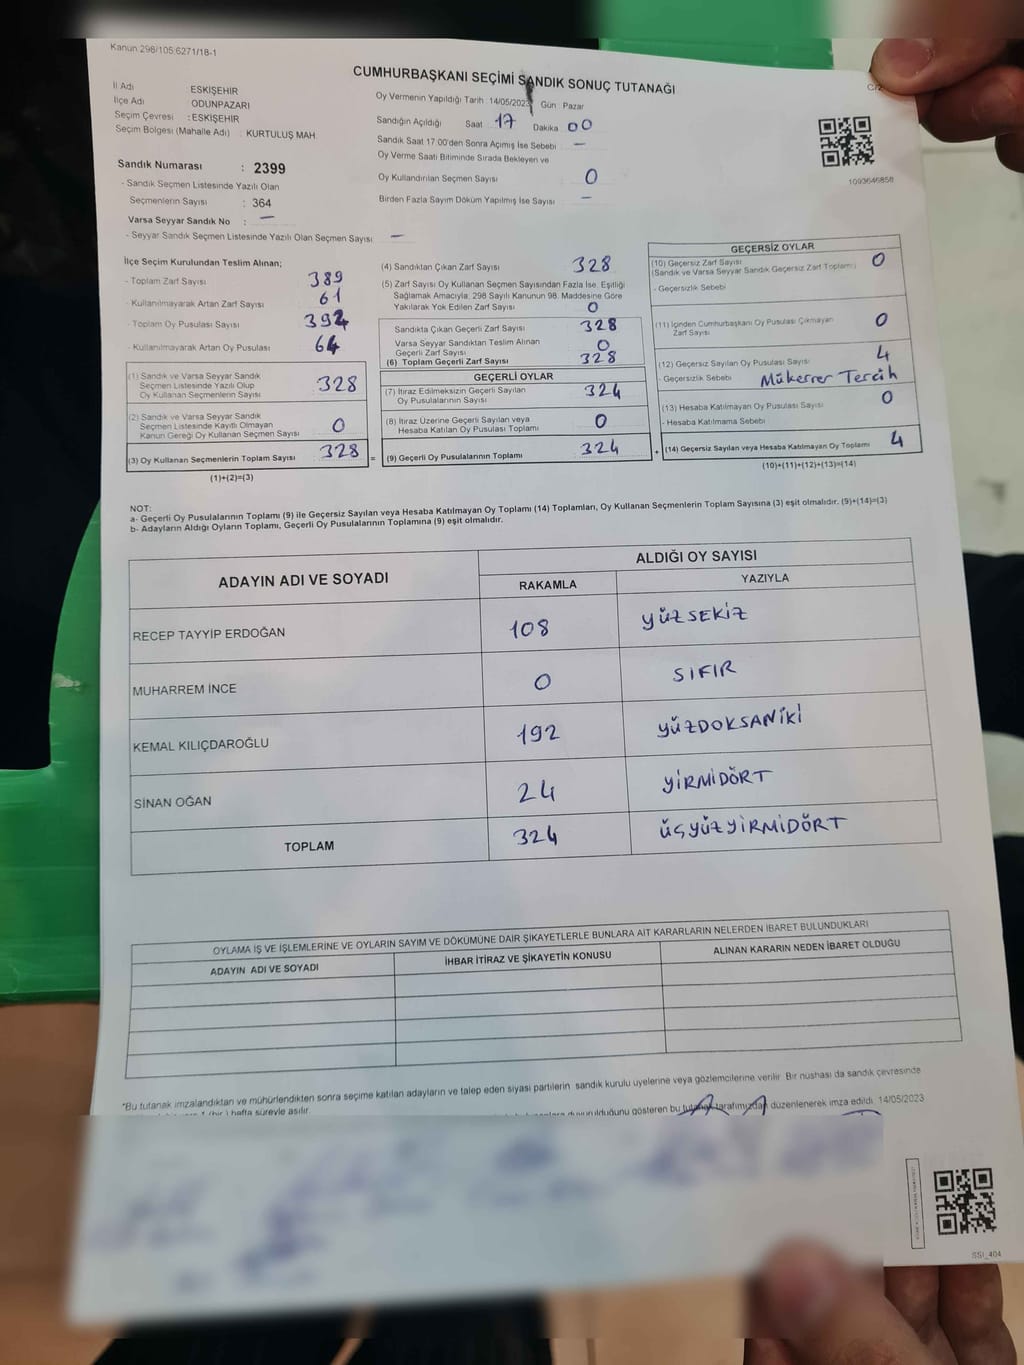 Kanun 298/105 6271/18-1
CUMHURBAŞKANI SEÇİMİ SANDIK SONUÇ TUTANAĞI
İl Adı ESKİŞEHİR
İlçe Adı ODUNPAZARI
Seçim Çevresi : ESKİŞEHİR
Seçim Bölgesi (Mahalle Adı) : KURTULUŞ MAH.
Sandık Numarası : 2399
- Sandık Seçmen Listesinde Yazılı Olan
Seçmenlerin Sayısı : 364
Varsa Seyyar Sandık No : —
- Seyyar Sandık Seçmen Listesinde Yazılı Olan Seçmen Sayısı : —
Oy Vermenin Yapıldığı Tarih 14/05/2023 Gün Pazar
Sandığın Açıldığı Saat 17 Dakika 00
Sandık Saat 17:00'den Sonra Açımış İse Sebebi —
Oy Verme Saati Bitiminde Sırada Bekleyen ve
Oy Kullandırılan Seçmen Sayısı 0
Birden Fazla Sayım Döküm Yapılmış İse Sayısı —
1093646858
İlçe Seçim Kurulundan Teslim Alınan;
- Toplam Zarf Sayısı 389
- Kullanılmayarak Artan Zarf Sayısı 61
- Toplam Oy Pusulası Sayısı 392
- Kullanılmayarak Artan Oy Pusulası 64
(1) Sandık ve Varsa Seyyar Sandık
Seçmen Listesinde Yazılı Olup
Oy Kullanan Seçmenlerin Sayısı 328
(2) Sandık ve Varsa Seyyar Sandık
Seçmen Listesinde Kayıtlı Olmayan
Kanun Gereği Oy Kullanan Seçmen Sayısı 0
(3) Oy Kullanan Seçmenlerin Toplam Sayısı 328 =
(1)+(2)=(3)
(4) Sandıktan Çıkan Zarf Sayısı 328
(5) Zarf Sayısı Oy Kullanan Seçmen Sayısından Fazla İse, Eşitliği
Sağlamak Amacıyla; 298 Sayılı Kanunun 98. Maddesine Göre
Yakılarak Yok Edilen Zarf Sayısı 0
Sandıkta Çıkan Geçerli Zarf Sayısı 328
Varsa Seyyar Sandıktan Teslim Alınan
Geçerli Zarf Sayısı 0
(6) Toplam Geçerli Zarf Sayısı 328
GEÇERLİ OYLAR
(7) İtiraz Edilmeksizin Geçerli Sayılan
Oy Pusulalarının Sayısı 324
(8) İtiraz Üzerine Geçerli Sayılan veya
Hesaba Katılan Oy Pusulası Toplamı 0
(9) Geçerli Oy Pusulalarının Toplamı 324 +
GEÇERSİZ OYLAR
(10) Geçersiz Zarf Sayısı 0
(Sandık ve Varsa Seyyar Sandık Geçersiz Zarf Toplamı)
- Geçersizlik Sebebi
(11) İçinden Cumhurbaşkanı Oy Pusulası Çıkmayan
Zarf Sayısı 0
(12) Geçersiz Sayılan Oy Pusulası Sayısı 4
- Geçersizlik Sebebi Mükerrer Tercih
(13) Hesaba Katılmayan Oy Pusulası Sayısı 0
- Hesaba Katılmama Sebebi
(14) Geçersiz Sayılan veya Hesaba Katılmayan Oy Toplamı 4
(10)+(11)+(12)+(13)=(14)
NOT:
a- Geçerli Oy Pusulalarının Toplamı (9) ile Geçersiz Sayılan veya Hesaba Katılmayan Oy Toplamı (14) Toplamları, Oy Kullanan Seçmenlerin Toplam Sayısına (3) eşit olmalıdır. (9)+(14)=(3)
b- Adayların Aldığı Oyların Toplamı, Geçerli Oy Pusulalarının Toplamına (9) eşit olmalıdır.
ADAYIN ADI VE SOYADI
ALDIĞI OY SAYISI
RAKAMLA YAZIYLA
RECEP TAYYİP ERDOĞAN 108 YÜZSEKİZ
MUHARREM İNCE 0 SIFIR
KEMAL KILIÇDAROĞLU 192 YÜZDOKSANİKİ
SİNAN OĞAN 24 YİRMİDÖRT
TOPLAM 324 ÜÇYÜZYİRMİDÖRT
OYLAMA İŞ VE İŞLEMLERİNE VE OYLARIN SAYIM VE DÖKÜMÜNE DAİR ŞİKAYETLERLE BUNLARA AİT KARARLARIN NELERDEN İBARET BULUNDUKLARI
ADAYIN ADI VE SOYADI İHBAR İTİRAZ VE ŞİKAYETİN KONUSU ALINAN KARARIN NEDEN İBARET OLDUĞU
*Bu tutanak imzalandıktan ve mühürlendikten sonra seçime katılan adayların ve talep eden siyasi partilerin sandık kurulu üyelerine veya gözlemcilerine verilir. Bir nüshası da sandık çevresinde
1 (bir) hafta süreyle asılır.
duyurulduğunu gösteren bu tutanak tarafımızdan düzenlenerek imza edildi. 14/05/2023
SSI_404